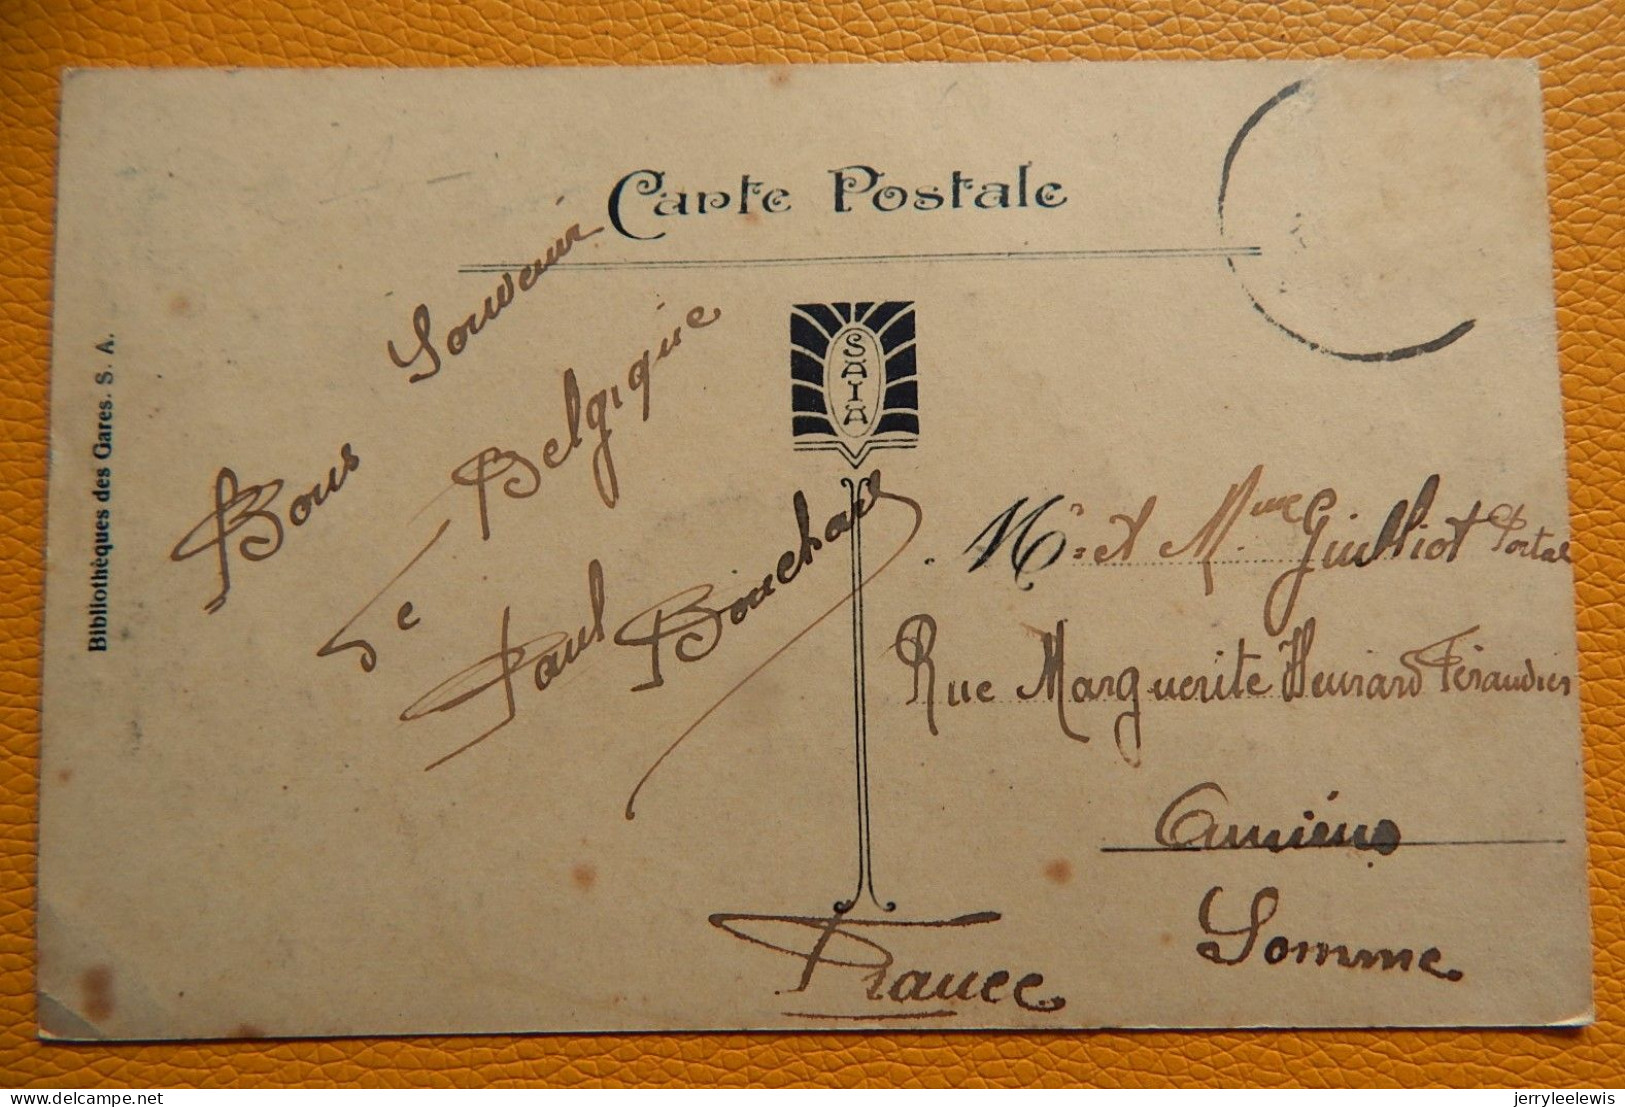 Carte Postale
Bibliothèques des Gares. S. A.
SAIA
Bons
Souvenir
de Belgique
Paul Bouchard
Mr et Mme Guilliot Portal
Rue Marguerite
Amiens
Somme
France
jerryleelewis